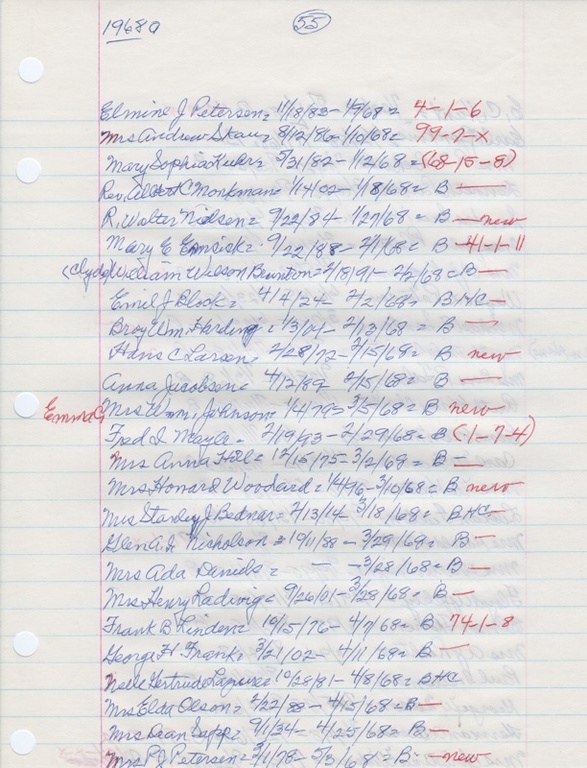 1968a 55
Elmine J Petersen = 11/18/83 - 1/9/68 = 4-1-6
Mrs Andrew Skau = 8/12/86 - 1/10/68 = 99-2-x
Mary Sophia = 5/31/82 - 1/12/68 = (68-15-8)
Rev. Albert C Monkman = 1/14/02 - 1/18/68 = B —
R. Walter Nielsen = 9/22/84 - 1/27/68 = B — new
Mary E = 9/22/88 - 2/1/68 = B - 41-1-11
(Clyde) William Wilson Brunton = 2/18/91 - 2/2/68 = B —
Emil J Block = 4/4/24 - 2/2/68 = B HC —
Broy Wm. Harding = 1/3/04 - 2/13/68 = B —
Hans C Larson = 2/28/72 - 2/15/68 = B new
Anna Jacobsen = 4/12/82 2/15/68 = B —
Emma G Mrs Wm. Johnson = 1/4/793 - 2/5/68 = B new
Fred I Mayle = 2/19/93 - 2/29/68 = B (1-7-4)
Mrs Anna Hill = 12/15/75 - 3/2/68 = B —
Mrs Howard Woodard = 1/4/96 - 3/10/68 = B new
Mrs Stanley J Bednar = 2/13/14 - 3/18/68 = B HC —
Glen A. Nicholson = 10/1/88 - 3/29/68 = B —
Mrs Ada Daniels = — - 3/28/68 = B —
Mrs Henry Ladwig = 9/26/01 - 3/28/68 = B —
Frank B Linden = 10/15/76 - 4/7/68 = B 74-1-8
George H Frank = 3/21/02 - 4/11/68 = B —
Gertrude = 10/28/81 - 4/8/68 = B HC
Mrs Elda Olson = 2/22/89 - 4/15/68 = B —
Mrs Dean Sapp = 9/1/34 - 4/25/68 = B —
Mrs P J Petersen = 3/1/78 - 5/3/68 = B - new